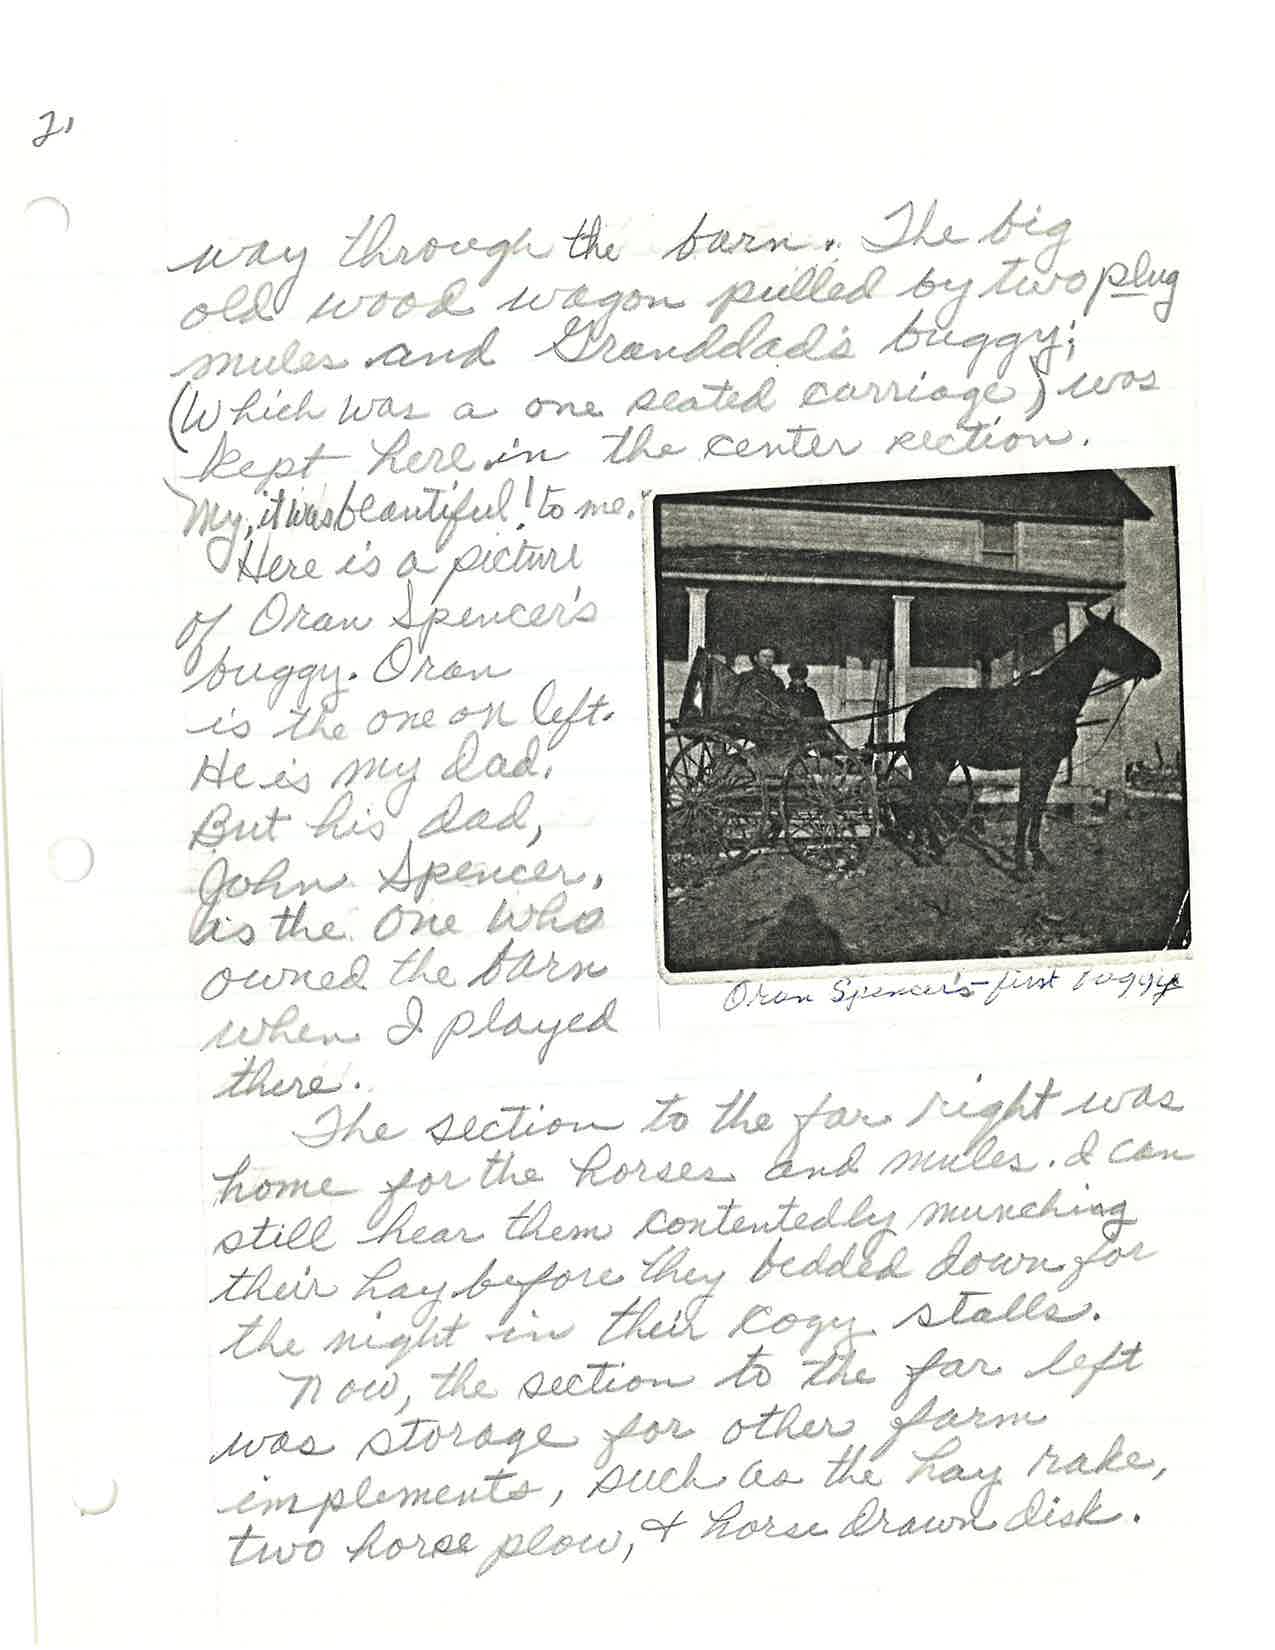 2.
way through the barn. The big
old wood wagon pulled by two plug
mules and Granddad's buggy;
(which was a one seated carriage) was
kept here in the center section.
My, it was beautiful! to me.
Here is a picture
of Oran Spencer's
buggy. Oran
is the one on left.
He is my dad.
But his dad,
John Spencer,
is the one who
owned the barn
when I played
there.
Oran Spencer's first buggy
The section to the far right was
home for the horses and mules. I can
still hear them contentedly munching
their hay before they bedded down for
the night in their cozy stalls.
Now, the section to the far left
was storage for other farm
implements, such as the hay rake,
two horse plow, & horse drawn disk.